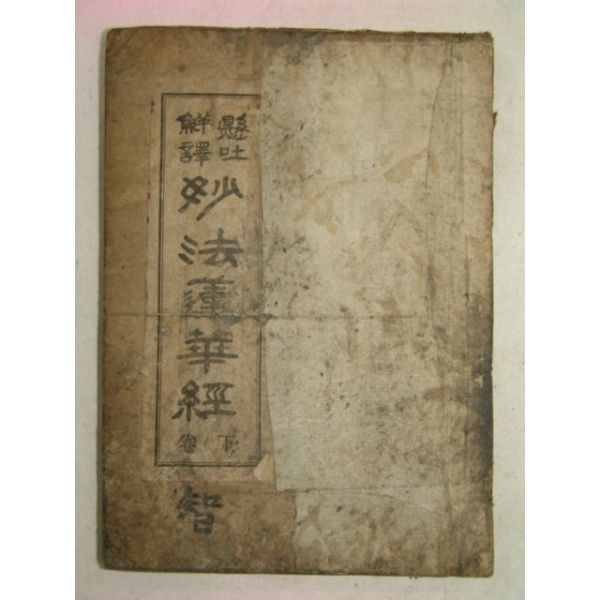 懸吐
鮮譯
妙法蓮華經
下卷
智